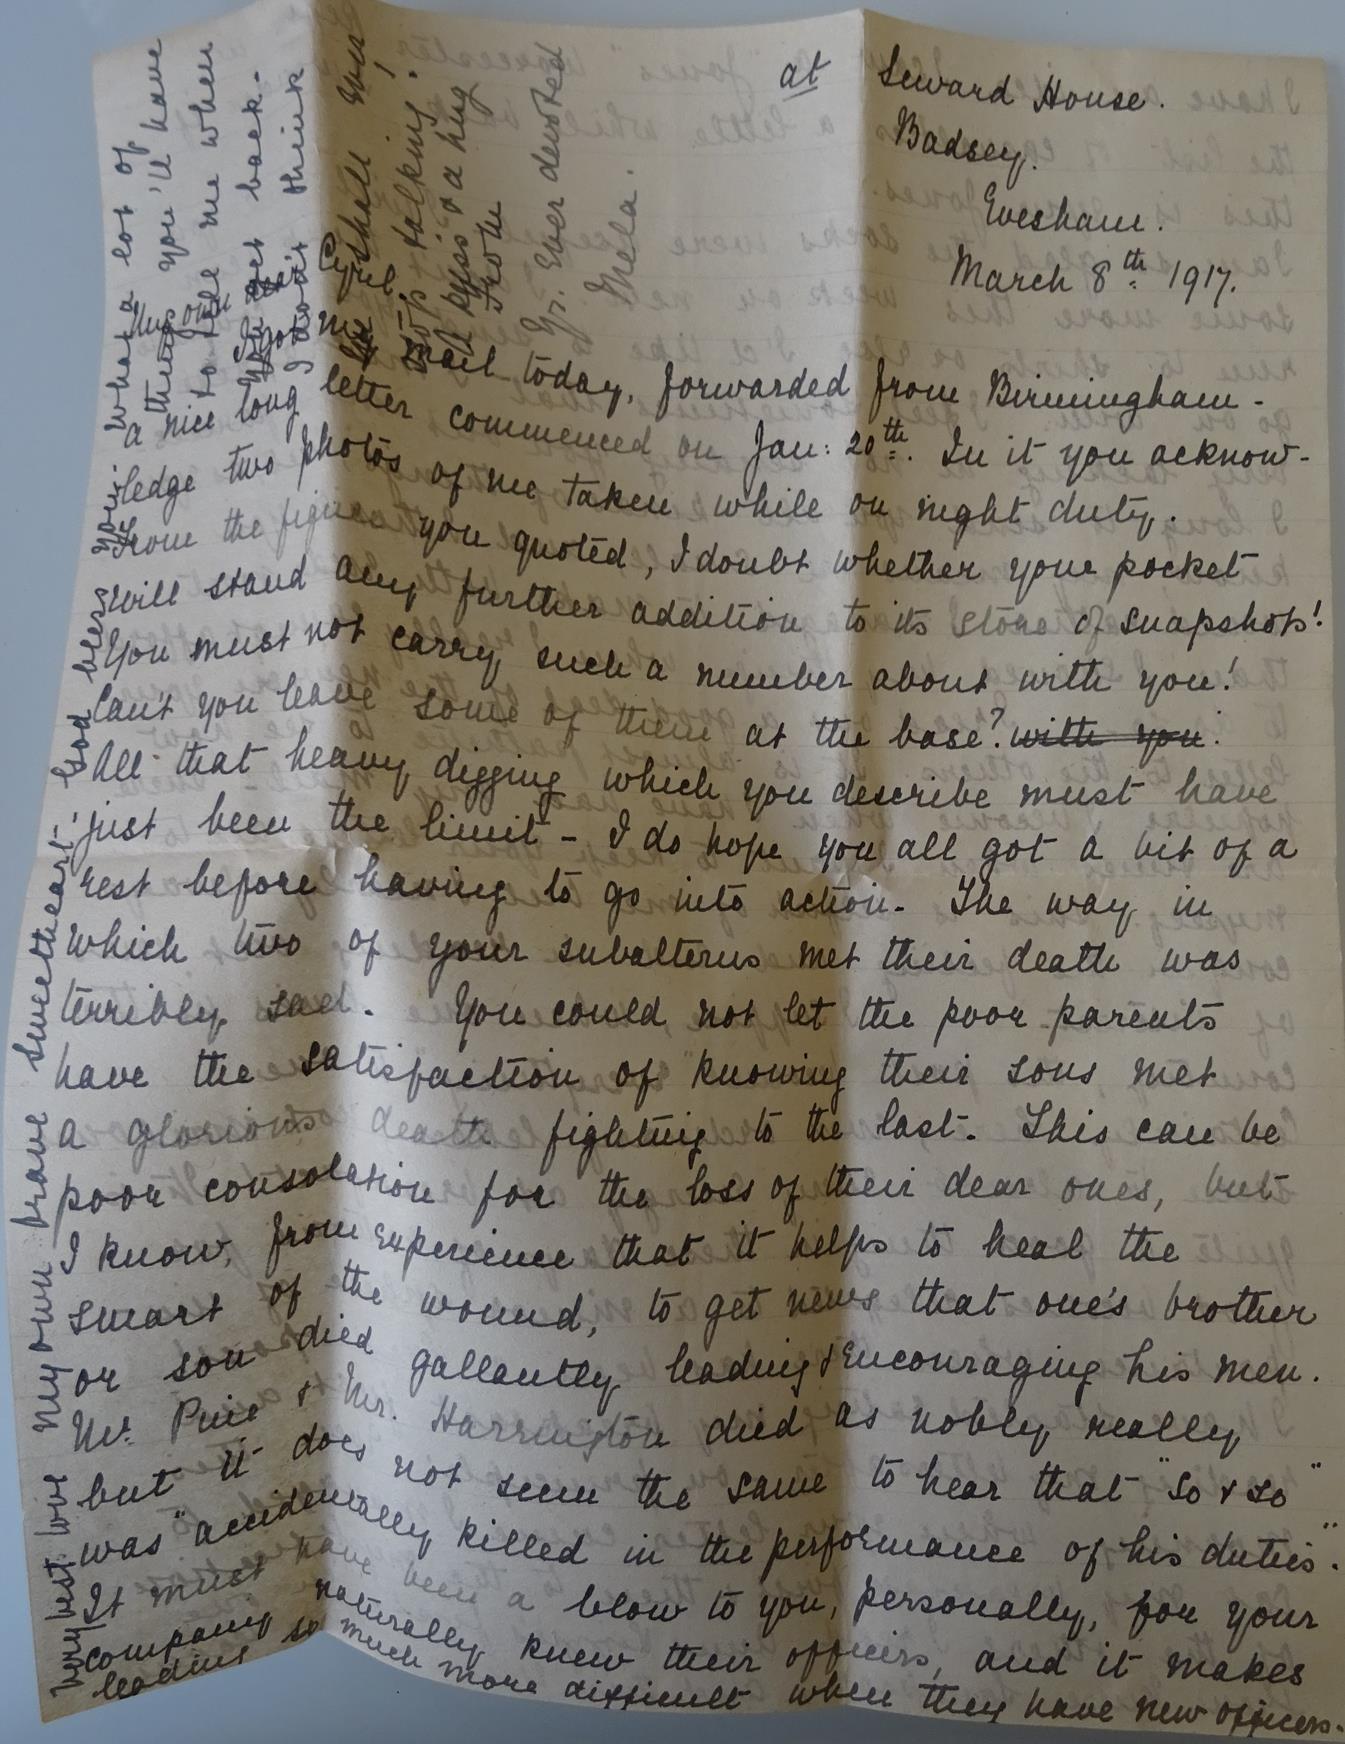 at Seward House.
Badsey.
Evesham.
March 8th 1917.
My own dear Cyril,
I got my mail today, forwarded from Birmingham -
a nice long letter commenced on Jan: 20th. In it you acknow-
ledge two photos of me taken while on night duty.
From the figures you quoted, I doubt whether your pocket
will stand any further addition to its store of snapshots!
You must not carry such a number about with you!
Can't you leave some of them at the base? with you!
All that heavy digging which you describe must have
just been the limit - I do hope you all got a bit of a
rest before having to go into action. The way in
which two of your subalterns met their death was
terribly sad. You could not let the poor parents
have the satisfaction of knowing their sons met
a glorious death fighting to the last. This can be
poor consolation for the loss of their dear ones, but
I know, from experience that it helps to heal the
smart of the wound, to get news that one's brother
or son died gallantly leading & encouraging his men.
Mr. Price & Mr. Harrington died as nobly really
but it does not seem the same to hear that "So & so"
was "accidentally killed in the performance of his duties".
It must have been a blow to you, personally, for your
company naturally knew their officers, and it makes
leading so much more difficult when they have new officers.
Very best love my own brave sweetheart. God bless you.
What a lot of
things you'll have
to tell me when
you get back.
I don't think
I shall
stop talking!
A kiss & a hug
from
Yr. Ever devoted
Mela.